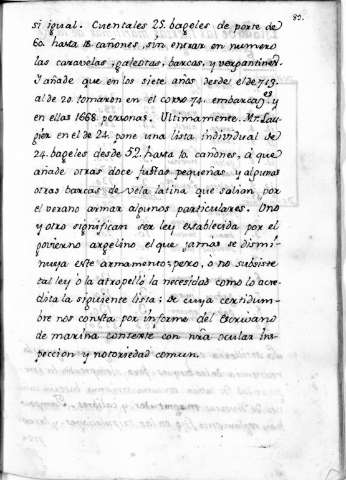 82.
si igual. Cuentales 25. bageles de porte de
60. hasta 18. cañones, sin entrar en numero
las caravelas, galeotas, barcas, y vergantines.
Y añade que en los siete años desde el de 713.
al de 20. tomaron en el corso 74. embarcaçes y
en ellas 1668. personas. Ultimamente Mr. Lau-
gier en el de 24. pone una lista individual de
24. bageles desde 52. hasta 10. cañones, à que
añade otras doce fustas pequeñas y algunas
otras barcas de vela latina que salian por
el verano armar algunos particulares. Uno
y otro significan ser ley establecida por el
govierno argelino el que jamas se dismi-
nuya este armamento; pero, ò no subsiste
tal ley, ò la atropellò la necesidad como lo acre-
dita la siguiente lista: de cuya certidum-
bre nos consta por informe del escrivano
de marina contexte con nr̃a ocular ins-
peccion y notoriedad comun.